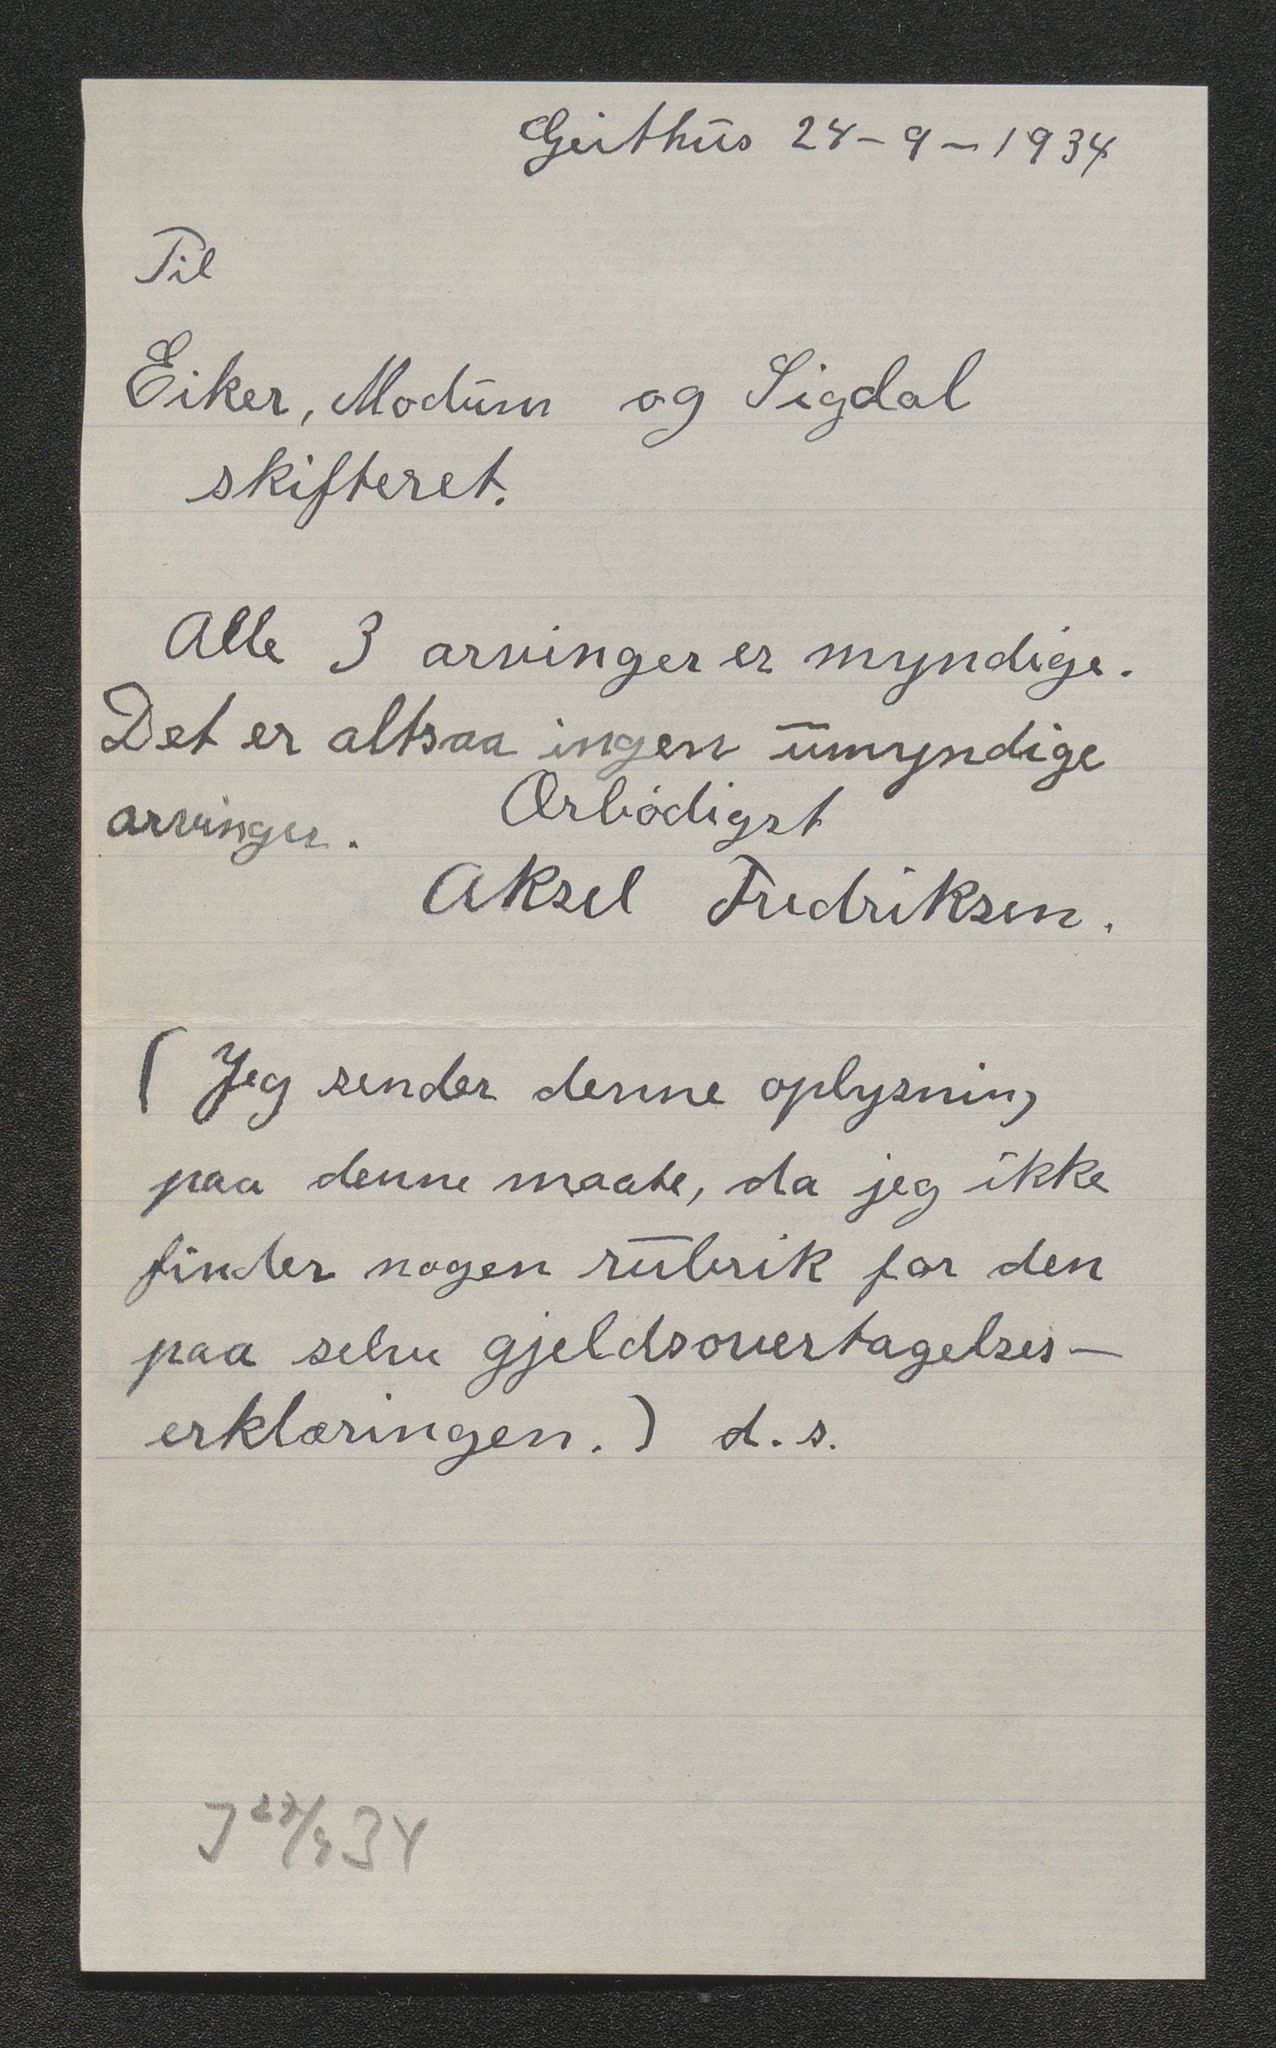 Geithus 24-9-1934
Til
Eiker, Modum og Sigdal
skifteret.
Alle 3 arvinger er myndige.
Det er altsaa ingen umyndige
arvinger. Ærbödigst
Aksel Fredriksen.
(Jeg sender denne oplysning
paa denne maate, da jeg ikke
finder nogen rubrik for den
paa selve gjeldsovertagelses-
erklæringen.) d.s.
34